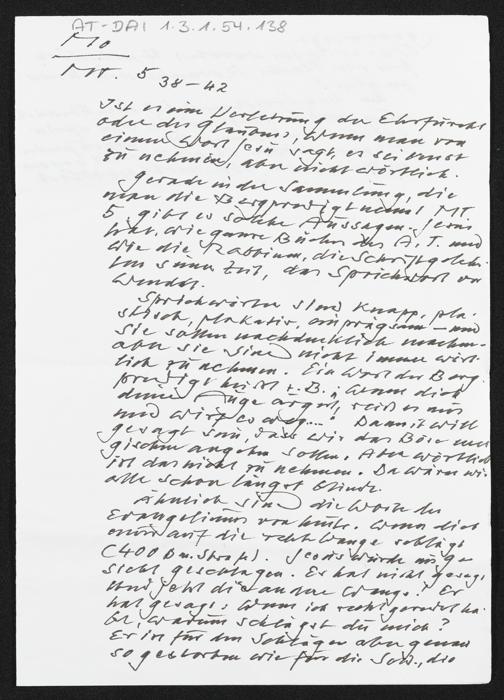 AT-DAI 1.3.1.54.138
Mo
Mt. 5 38-42
Ist es eine Verletzung der Ehrfurcht
oder des Glaubens, wenn man von
einem Wort Jesu sagt, es sei ernst
zu nehmen, aber nicht wörtlich.
Gerade in der Sammlung, die
man die Bergpredigt nennt, Mt.
5, gibt es solche Aussagen. Jesus
hat, wie ganze Bücher des A.T. und
wie die Rabbinen, die Schriftgelehr-
ten seiner Zeit, das Sprichwort ver
wendet.
Sprichwörter sind knapp, pla-
stisch, plakativ, einprägsam - und
sie sollen nachdenklich machen -
aber sie sind nicht immer wört-
lich zu nehmen. Ein Wort der Berg.
predigt heißt z.B.: Wenn dich
dein Auge ärgert, reiß es aus
und wirf es weg....! Damit will
gesagt sein, dass wir das Böse ener
gisch angehn sollen. Aber wörtlich
ist das nicht zu nehmen. Da wären wir
alle schon längst blind.
Ähnlich sind die Worte des
Evangeliums von heute. Wenn dich
einer auf die rechte Wange schlägt
(400 Strafe). Jesus wurde ins Ge
sicht geschlagen. Er hat nicht gesagt
Und jetzt die andere Wange! Er
hat gesagt: Wenn ich recht geredet ha
be, warum schlägst du mich?
Er ist für den Schläger aber genau
so gestorben wie für die Sold., die